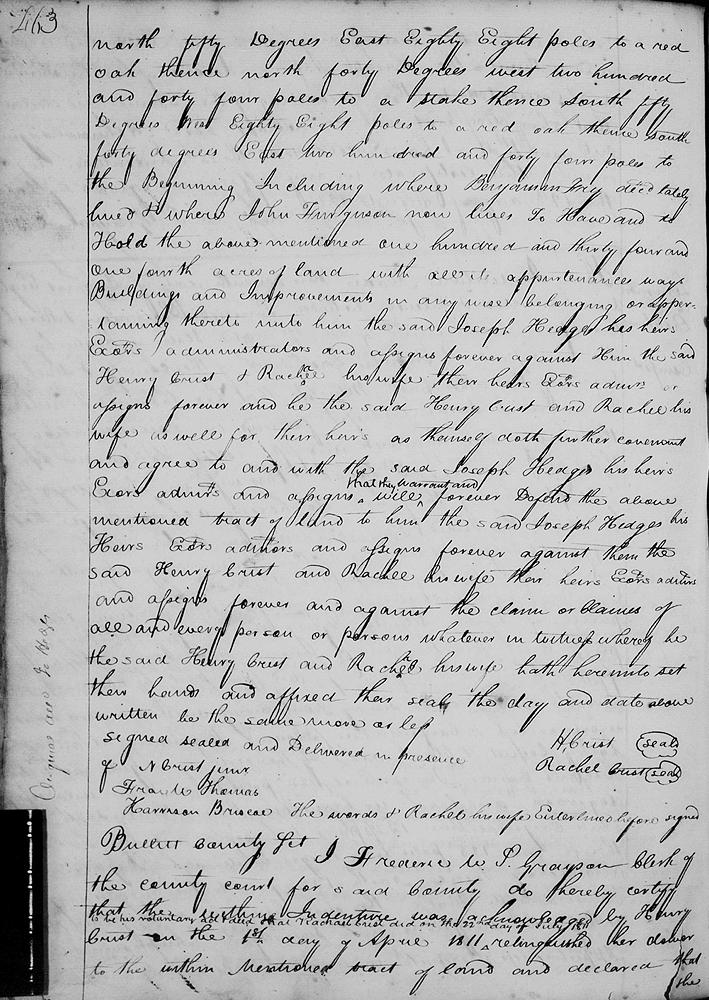 463
north fifty Degrees East Eighty Eight poles to a red
oak thence north forty Degrees west two hundred
and forty four poles to a stake thence South fifty
Degrees Wes Eighty Eight poles to a red oak thence South
forty degrees East two hundred and forty four poles to
the Beginning Including where Benjamin Fry decd lately
lived & where John Furguson now lives To Have and to
Hold the above mentioned one hundred and thirty four and
one fourth acres of land with all its appurtenances ways
Buildings and Improvements in any wise belonging or apper-
taining thereto unto him the said Joseph Hedges his heirs
Exors administrators and assigns forever against Him the said
Henry Crist & Rachel his wife their heirs Exors admrs or
assigns forever and he the said Henry Crist and Rachel his
wife as well for their heirs as themself doth further covenant
and agree to and with the said Joseph Hedges his heirs
that they warrant and
Exors admrs and assigns ^ will ^ forever Defend the above
mentioned tract of land to him the said Joseph Hedges his
Heirs Exors admtors and assigns forever against them the
said Henry Crist and Rachel his wife their heirs Exors admtrs
and assigns forever and against the claim or Claimes of
all and every person or persons whatever in witness whereof he
the said Henry Crist and Rachel his wife hath hereunto set
their hands and affixed their seals the day and date above
written be the same more or less
signed sealed and Delivered in presence
of N Crist junr
H Crist (seal)
Rachel Crist (seal)
Thomas
Harrison Briscoe The words & Rachel his wife Enterlined before signed
Bullitt County Sct I Frederic W. S. Grayson Clerk of
the county court for said County do hereby certify
that the within Indenture was acknowledged by Henry
to be his voluntary act & deed that Rachael Crist did on the 22nd day of July 1811
Crist on the 1st day of April 1811 ^ relinquished her dower
to the within Mentioned tract of land and declared that
the